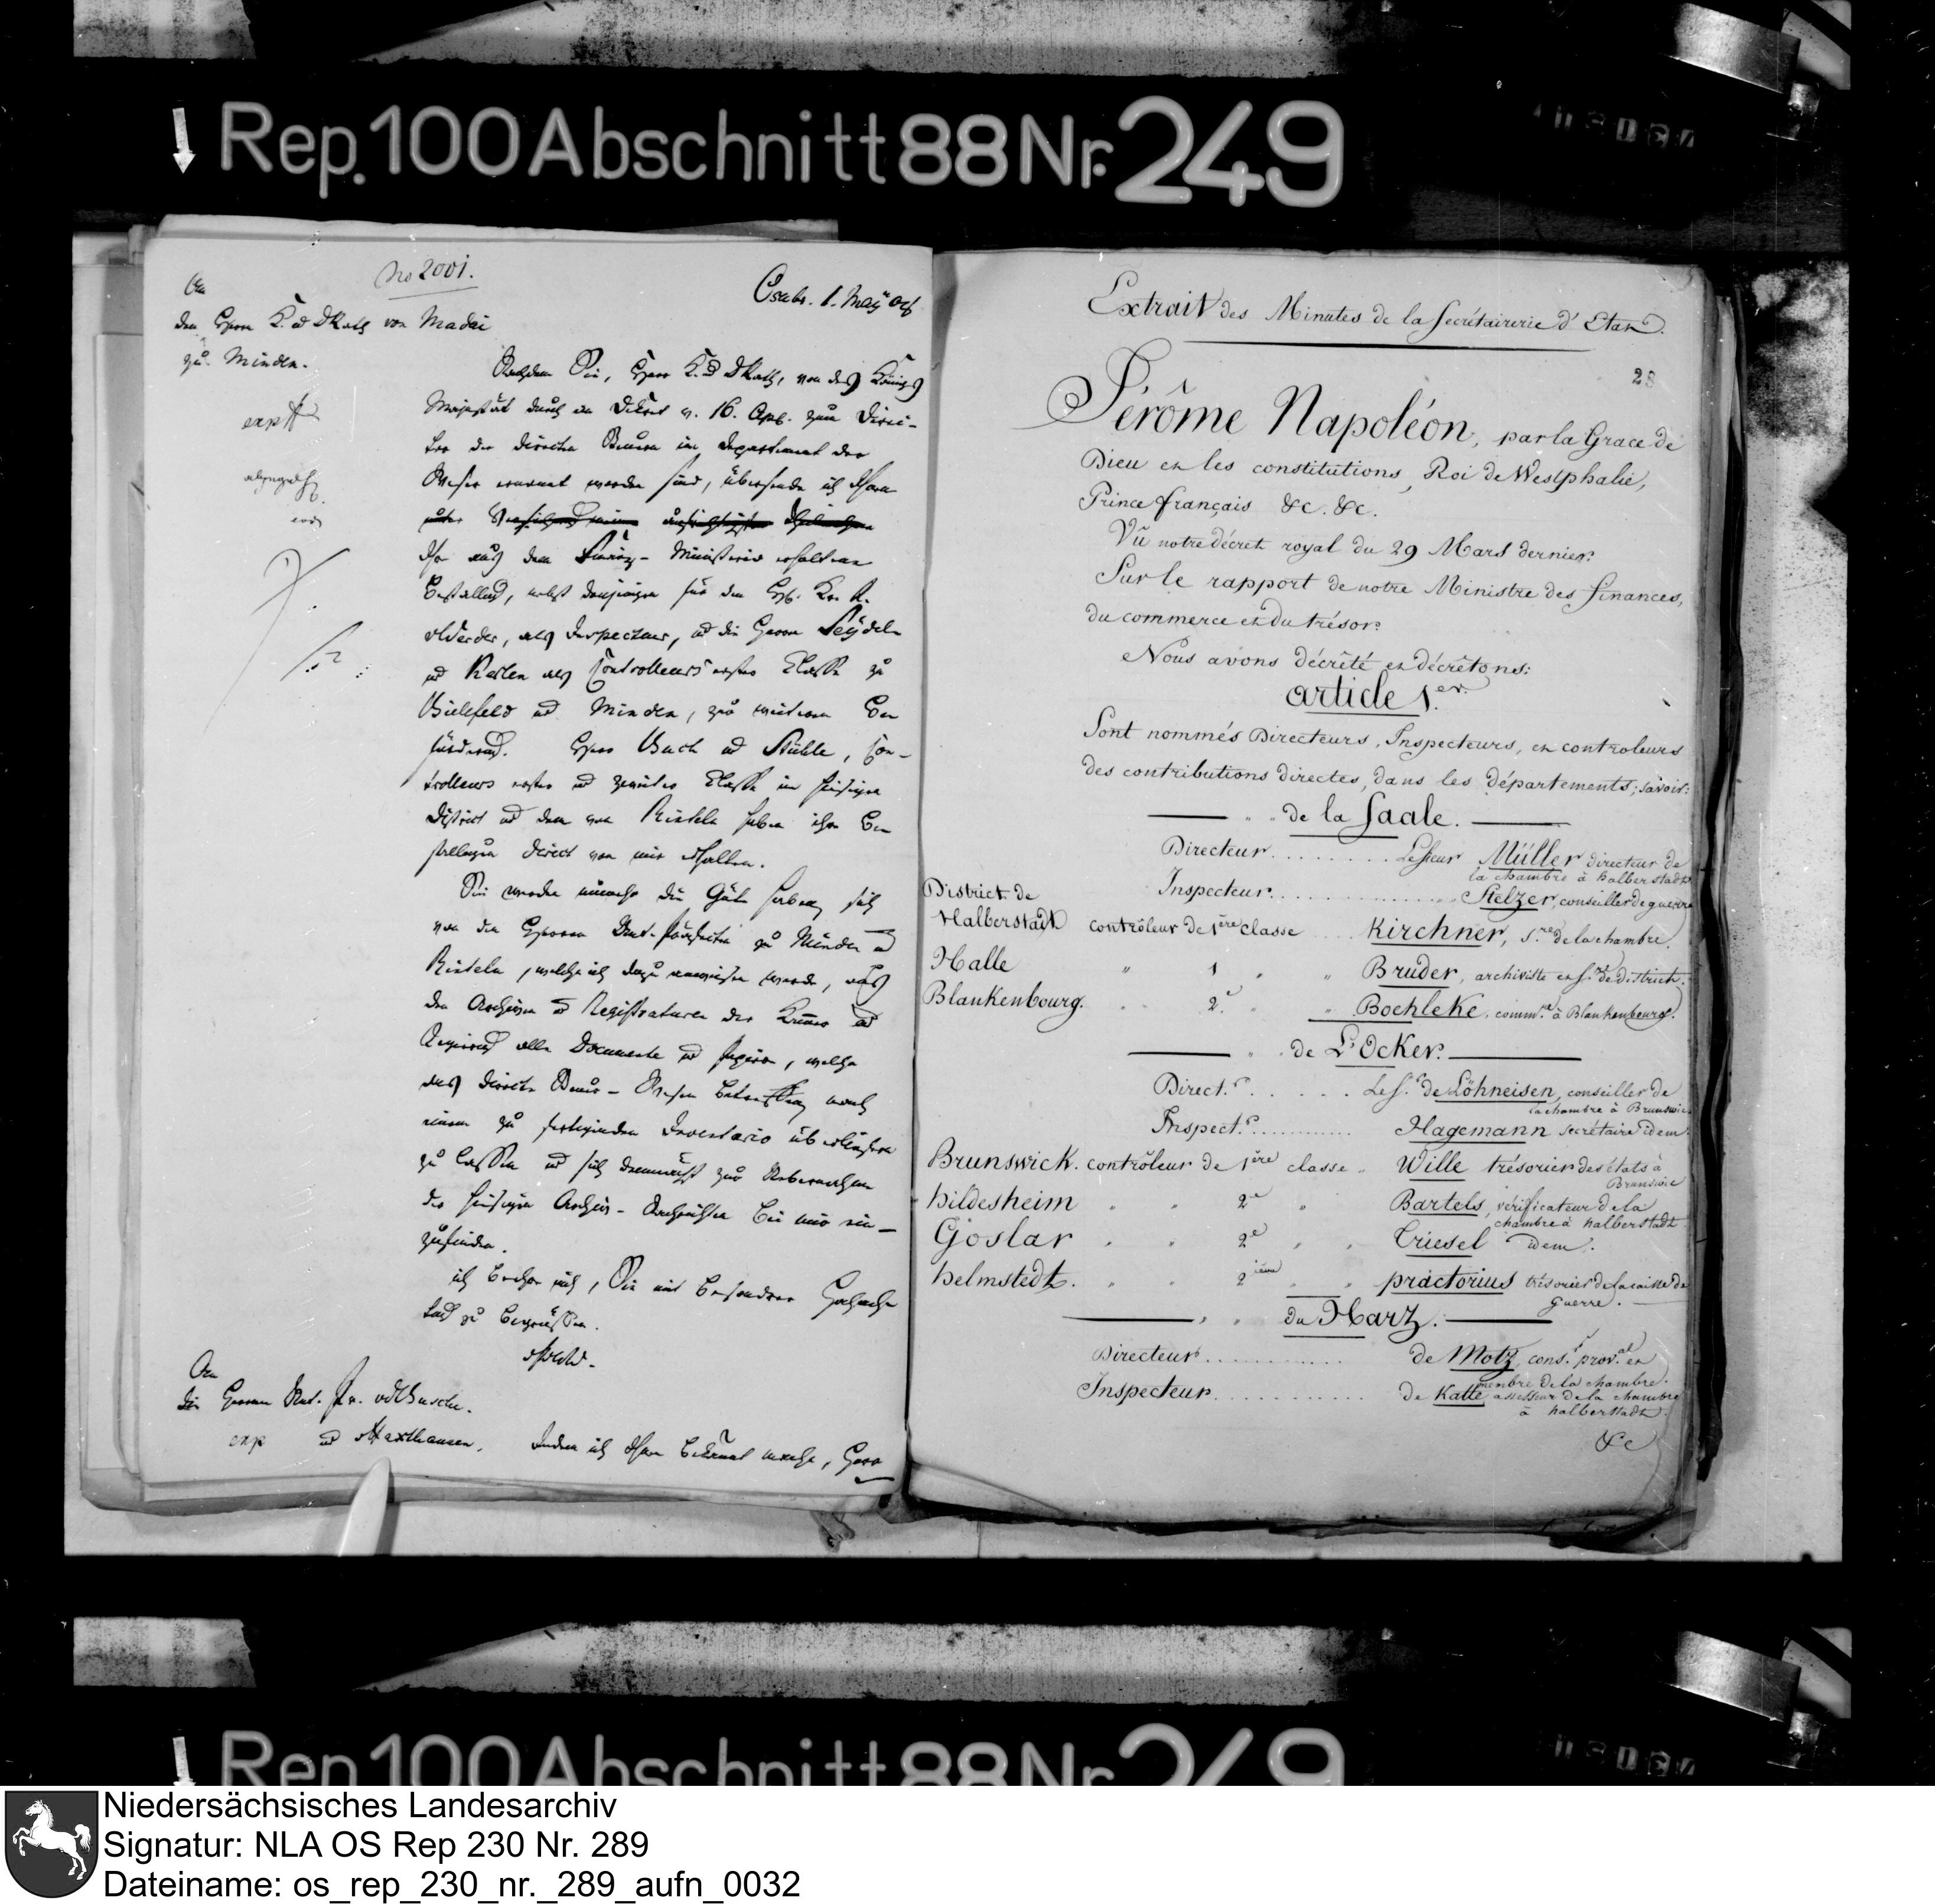 Rep. 100 Abschnitt 88 Nr. 249
No 2001.
Osnabr. 1. May 08
An
den Herrn K. u DRath von Madai
zu Minden.
expd
Nachdem Sie, Herr K. u DRath, von des Königs
Majestät durch ein Dekret v. 16. Apr. zum Direc-
tor der directen Steuern im Departement der
Weser ernannt worden sind, übersende ich Ihnen
die aus dem Finanz-Ministerio erhaltene
Bestallung, nebst denjenigen für den
als Inspecteur, und die Herren Seydel
und als Controlleurs erster Classe zu
Bielefeld und Minden, zur weitern Be
förderung. Herr Buch und Stühle, Con-
trolleurs erster und zweiter Classe im hiesigen
District und dem von Rinteln haben ihre Be
stallungen direct von mir erhalten.
Sie werden nunmehr die Güte haben, sich
von den Herren Unt. Präfecten zu Minden und
Rinteln, welche ich dazu anweisen werde, aus
den Archiven und Registraturen der Kammer und
Regierung alle Documente und Papiere, welche
das directe Steuer-Wesen betreffen nach
einem zu fertigenden Inventario überliefern
zu lassen und sich demnächst zur Uebernahme
der hiesigen Archiv-Nachrichten bei mir ein-
zufinden.
ich beehre mich, Sie mit besonderer Hochach
tung zu begrüßen.
An
die Herren Unt. Pr. vdBusche.
exp und vHaxthausen.
Indem ich Ihnen bekannt mache, Herr
Extrait des Minutes de la Secrétairerie d'Etat.
28
Jérôme Napoléon, par la Grace de
Dieu et les constitutions, Roi de Westphalie,
Prince français &c. &c.
Vû notre décret royal du 29 Mars dernier.
Sur le rapport de notre Ministre des finances,
du commerce et du trésor.
Nous avons décrété et décrétons:
article 1.er
Sont nommés Directeurs, Inspecteurs, et controleurs
des contributions directes, dans les départements; savoir:
de la Saale.
Directeur......... Le Sieur Müller directeur de
la chambre à halberstadt.
Inspecteur............... Stelzer, conseiller de guerre
District de
Halberstadt contrôleur de 1ère classe Kirchner, S.re de la chambre.
Halle " 1 " " Bruder, archiviste et S.re de district.
Blankenbourg. 2.e " Bochleke, comm.re à Blankenbourg.
de L'Ocker.
Direct.r...... Le S.r de Löhneisen, conseiller de
la chambre à Brunswic
Inspect.r........... Hagemann secrétaire idem.
Brunswick. contrôleur de 1ère classe Wille trésorier des états à
Brunswic
hildesheim " " 2e " Bartels, vérificateur de la
chambre à halberstadt
Goslar " " 2e " " Triesel idem.
helmstedt. " " 2ième " " praetorius trésorier de la caisse de
guerre.
du Harz.
Directeur............ de Motz, cons.r prov.al et
membre de la chambre.
Inspecteur............. de Katte, assesseur de la chambre
à halberstadt.
&c
Rep. 100 Abschnitt 88 Nr. 249
Niedersächsisches Landesarchiv
Signatur: NLA OS Rep 230 Nr. 289
Dateiname: os_rep_230_nr._289_aufn_0032